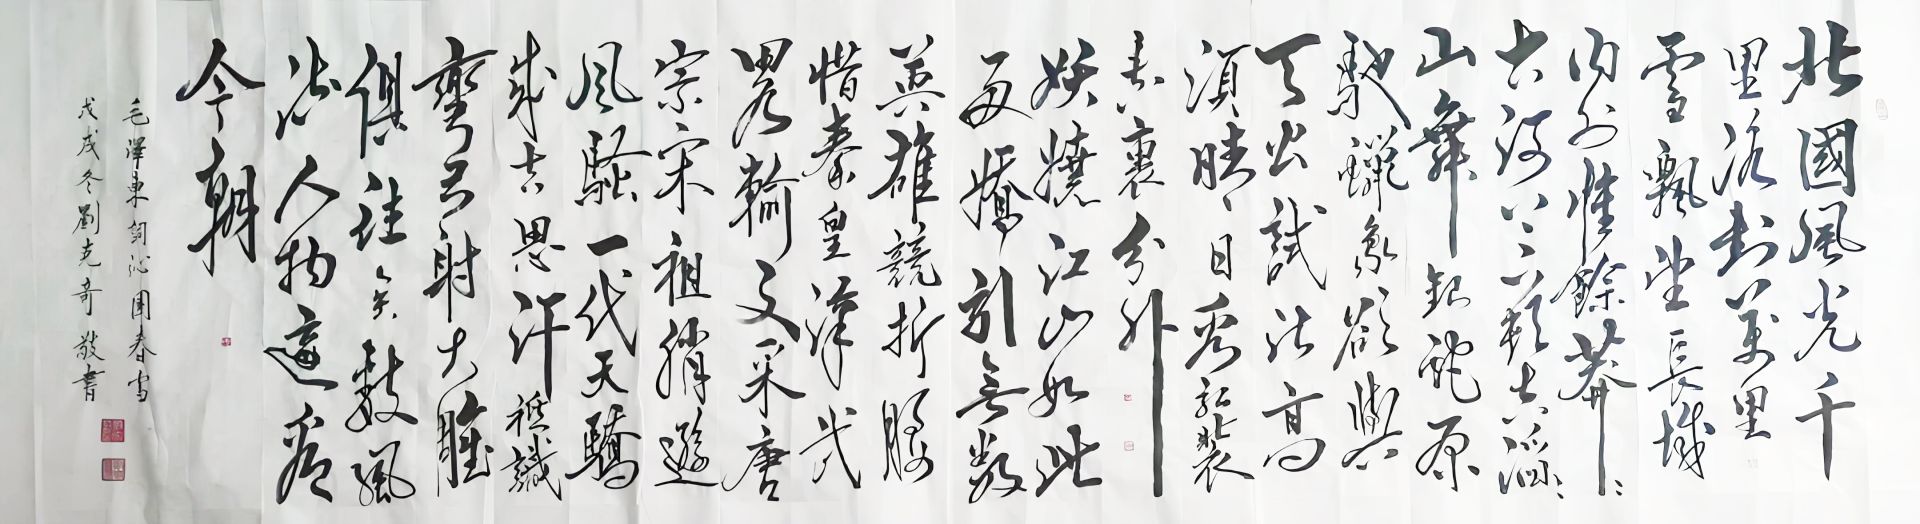 北國風光千
里冰封萬里
雪飄望長城
内外惟餘莽〻
大河上下頓失滔〻
山舞銀蛇原
馳蠟象欲與
天公試比高
須晴日看紅裝
素裹分外
妖嬈江山如此
多嬌引無數
英雄競折腰
惜秦皇漢武
畧輸文采唐
宗宋祖稍遜
風騷一代天驕
成吉思汗祗識
彎弓射大雕
俱往矣數風
流人物還看
今朝
毛澤東詞沁園春雪
戊戌冬劉克奇敬書